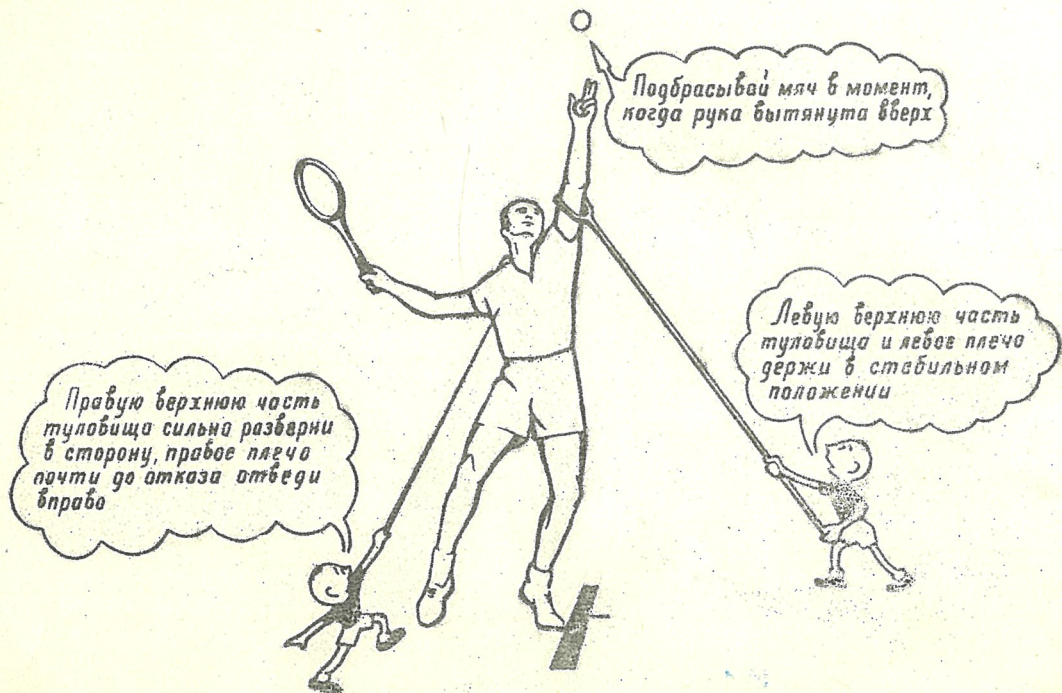 Подбрасывай мяч в момент,
когда рука вытянута вверх
Левую верхнюю часть
туловища и левое плечо
держи в стабильном
положении
Правую верхнюю часть
туловища сильно разверни
в сторону, правое плечо
почти до отказа отведи
вправо